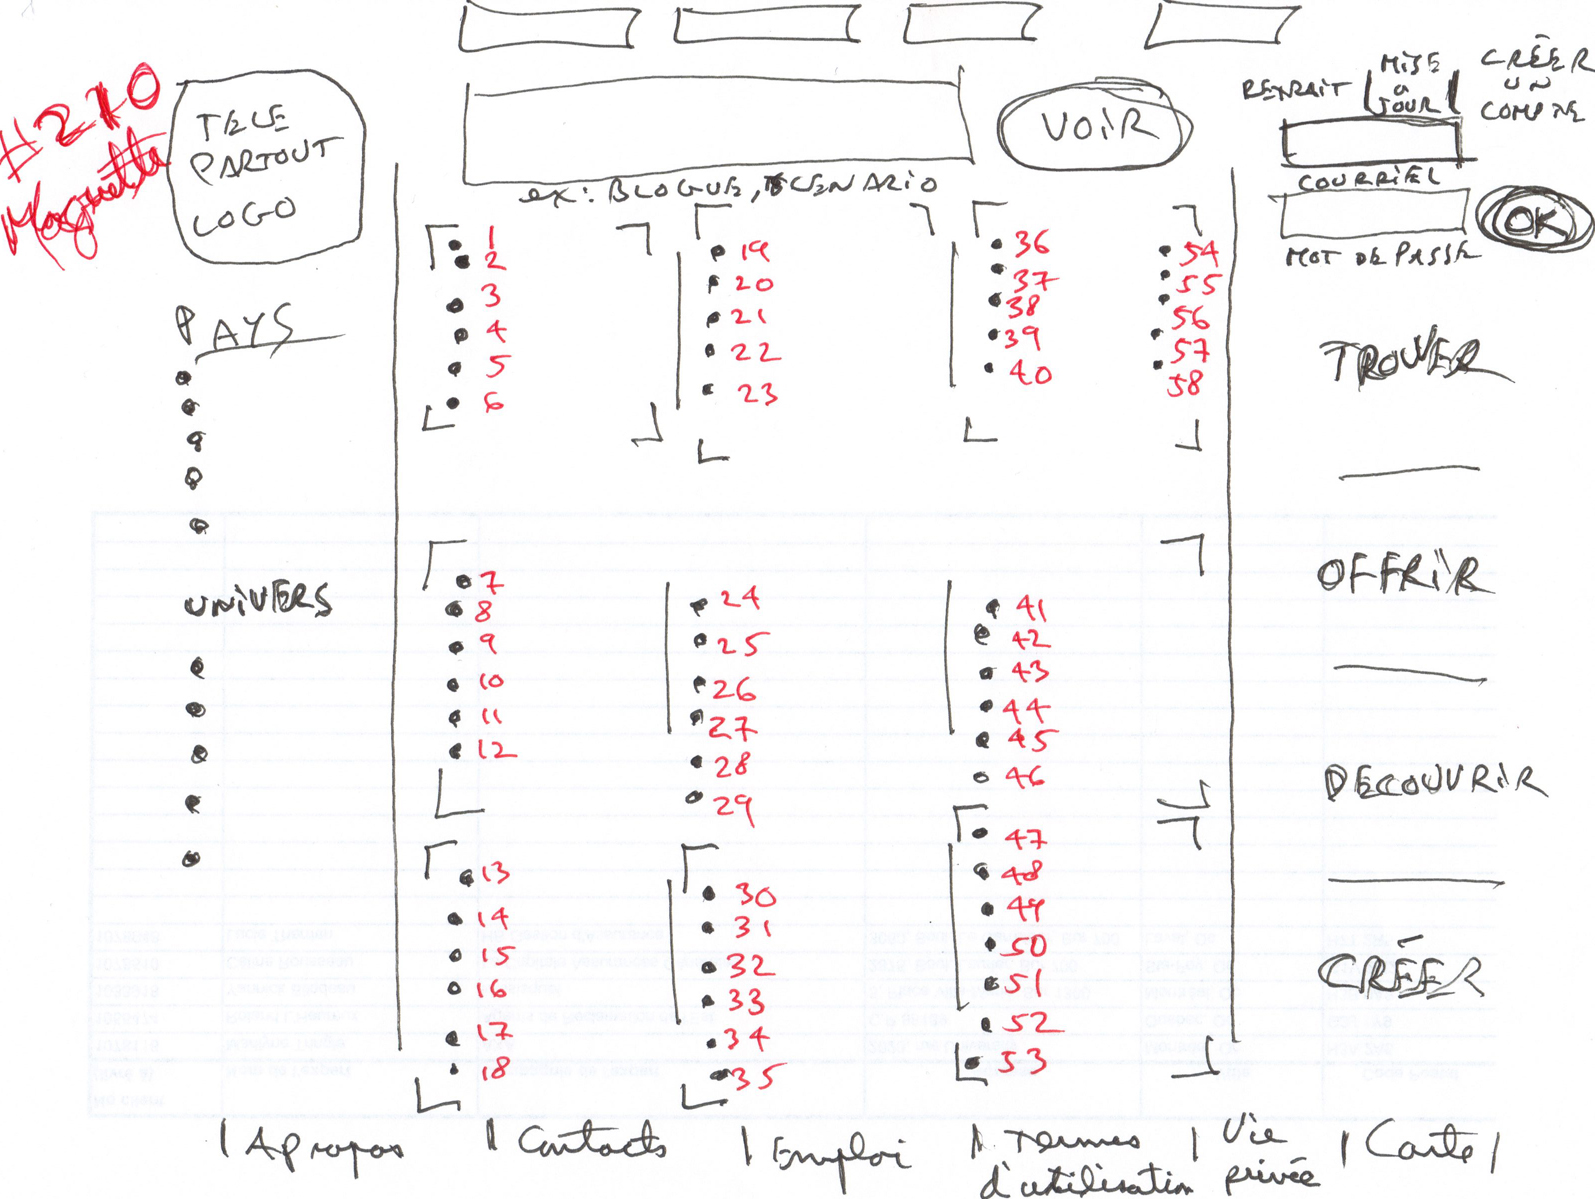 #270
Maquette
TELE
PARTOUT
LOGO
VOIR
ex: BLOGUE, SCENARIO
RETRAIT
MISE
A
JOUR
CRÉER
UN
COMPTE
COURRIEL
MOT DE PASSE
OK
PAYS
UNIVERS
1
2
3
4
5
6
19
20
21
22
23
36
37
38
39
40
54
55
56
57
58
7
8
9
10
11
12
24
25
26
27
28
29
41
42
43
44
45
46
13
14
15
16
17
18
30
31
32
33
34
35
47
48
49
50
51
52
53
TROUVER
OFFRIR
DECOUVRIR
CRÉER
| Apropos | Contacts | Emploi | Termes
d'utilisation
| Vie
privée
| Carte |